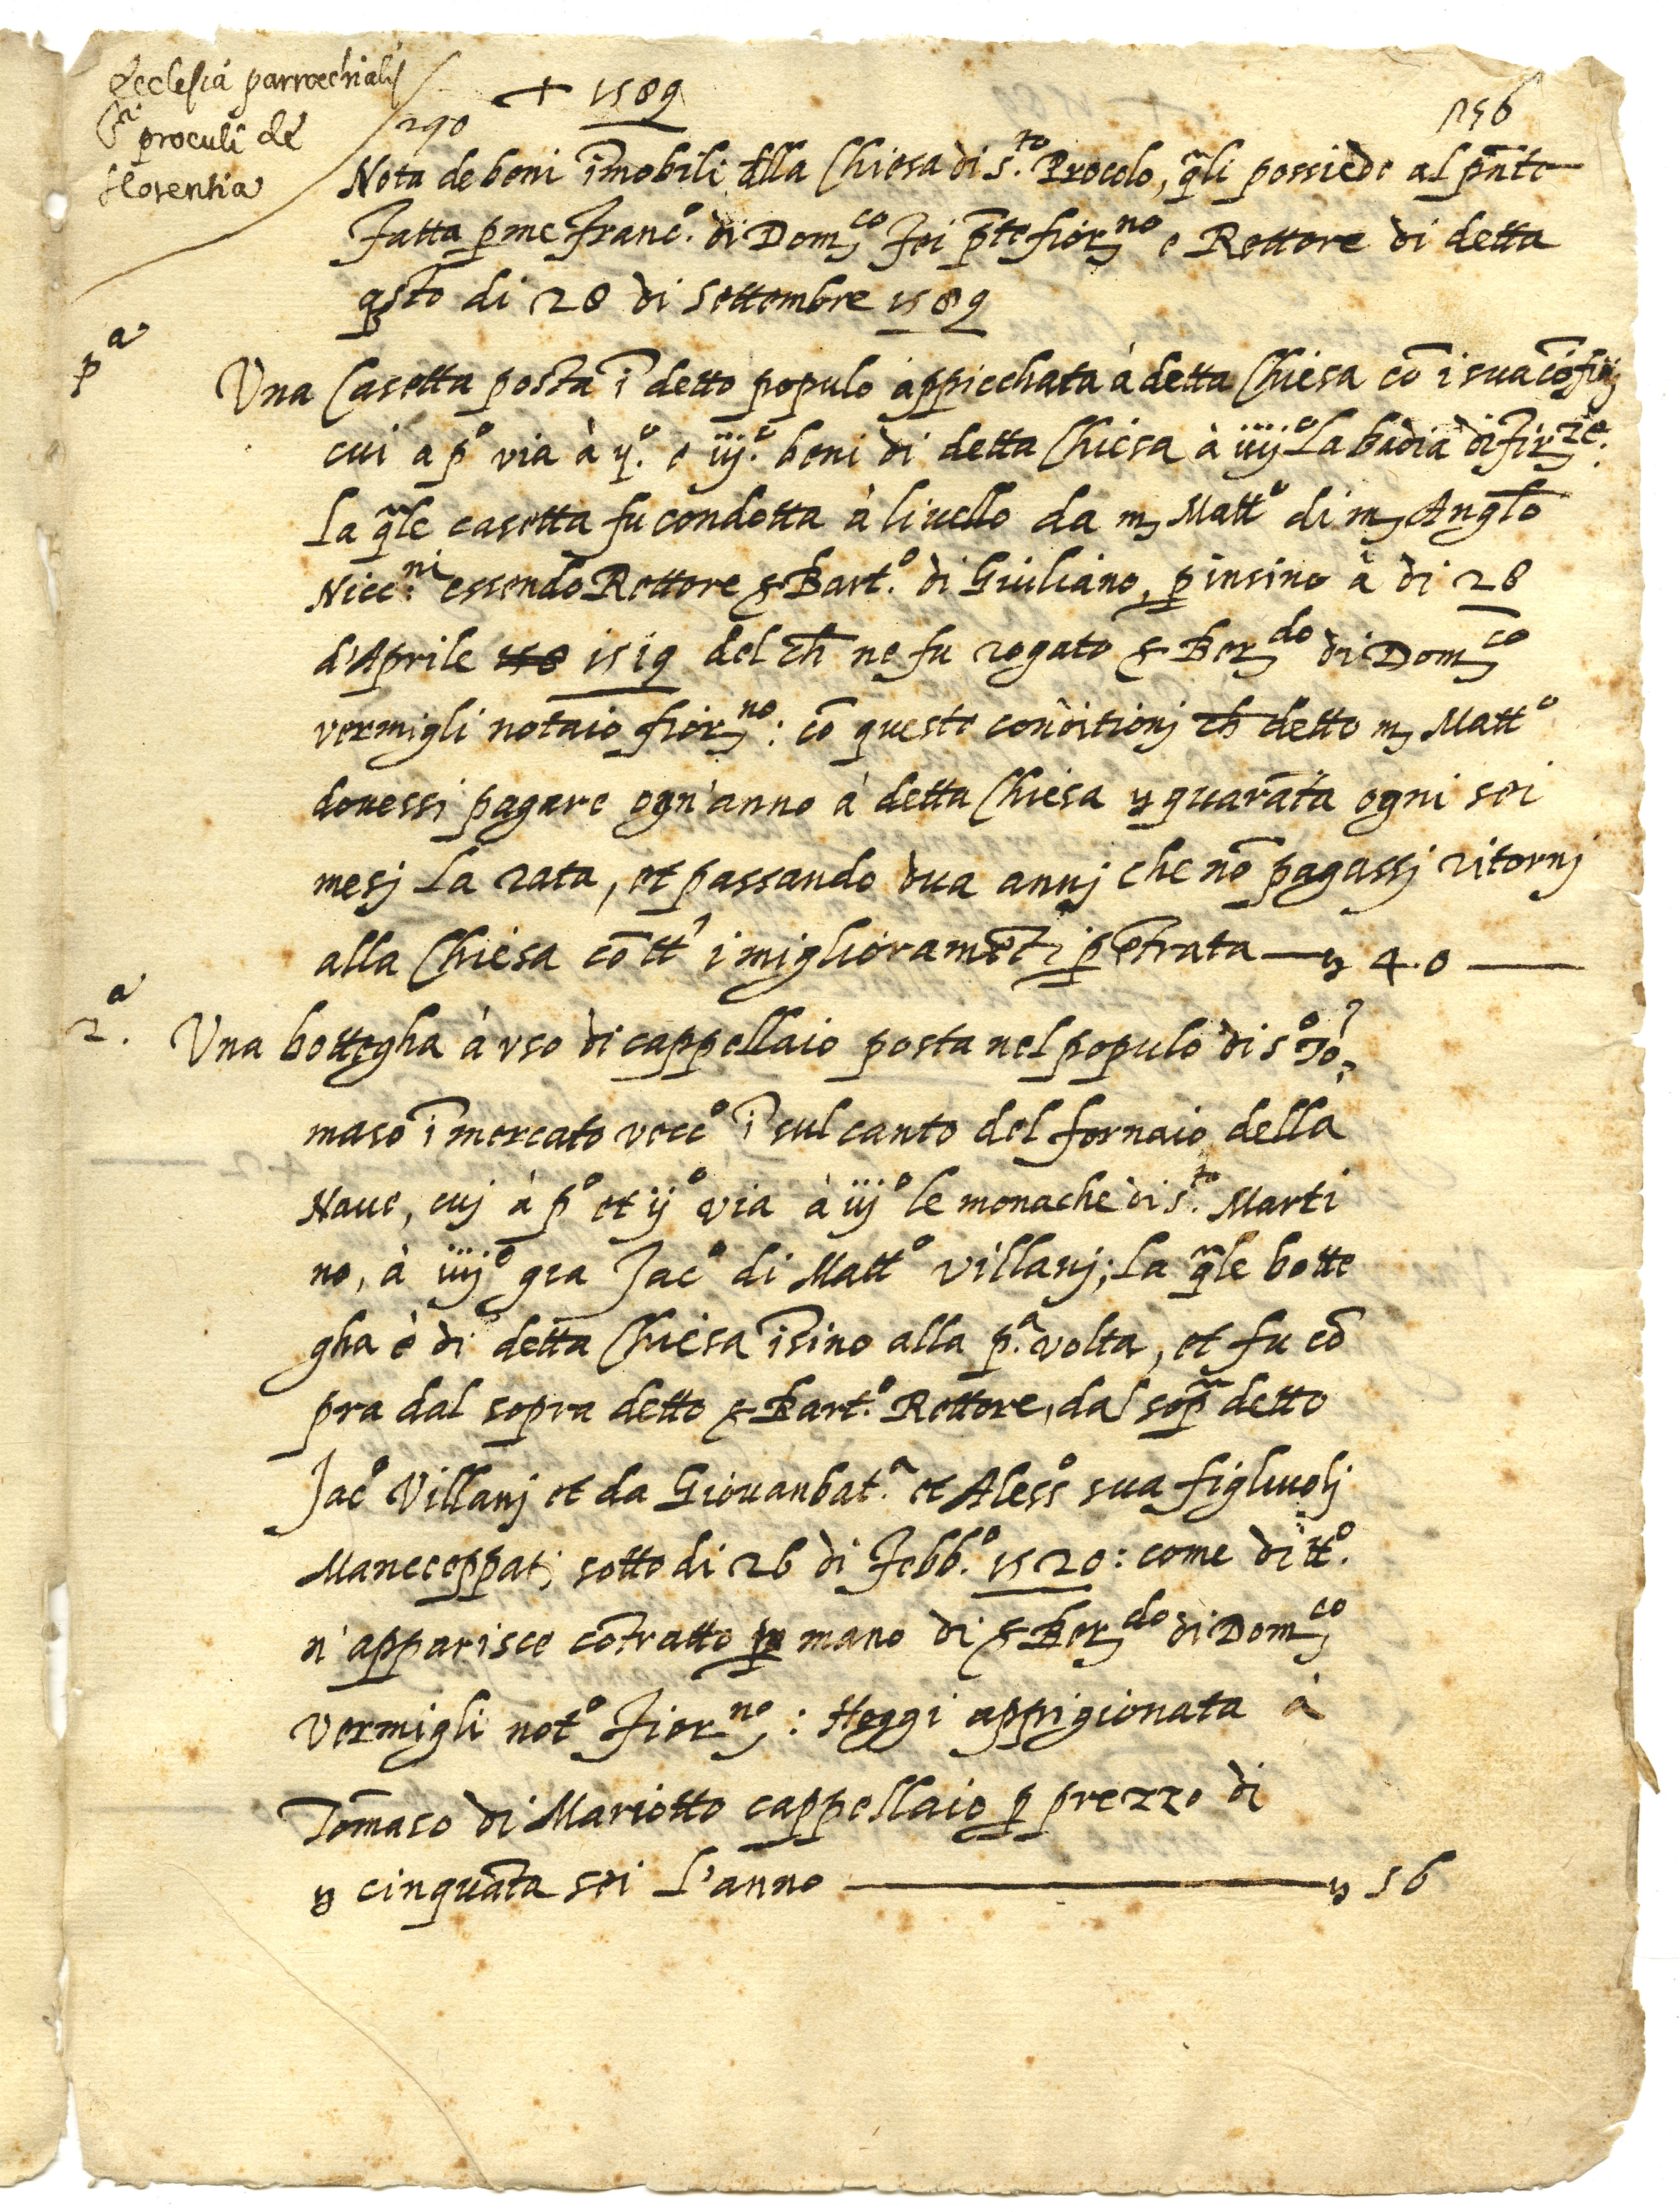 Ecclesia parrochialis
S.ti proculi de
florentia
290
+ 1589
156
Nota de beni im̄obili dlla Chiesa di S.to Procolo, q̄li possiede al pn̄te
Fatta p me Franc.o di Dom.co Fei p̄te fior.no e Rettore di detta
qsto di 28 di Settembre 1589
p.a
Una Casetta posta ī detto populo appicchata à detta Chiesa cō i sua cōfini
cui a p.o via à ij.o e iij.o beni di detta Chiesa à iiij.o La badia di fir.ze.
La q̄le casetta fu condotta à livello da m. Matt.o di m. Angl̄o
Nicc.ni essendo Rettore s. Bart.o di Giuliano, p insino à di 28
d'Aprile 1519 del ch̄ ne fu rogato s. Ber.do di Dom.co
vermigli notaio fior.no: cō queste conditionj ch̄ detto m. Matt.o
dovessi pagare ogn'anno à detta Chiesa quarāta ogni sei
mesj La rata, et passando dua annj che nō pagassj ritornj
alla Chiesa cō tt' i migliioramēti p ētrata — 40 —
2.a
Una bottegha à uso di cappellaio posta nel populo di s.o To:
maso ī mercato vecc.o ī sul canto del fornaio della
Nave, cuj à p.o et ij.o via à iij.o le monache di s.to Marti
no, à iiij.o gia Jac.o di Matt.o Villanj; La q̄le botte
gha è di detta Chiesa īsino alla p.a volta, et fu cō
pra dal sopra detto s. Bart.o Rettore, dal sop.a detto
Jac.o Villanj et da Giovanbat.a et Aless.o sua figluolj
Maneceppati sotto di 26 di Febb.o 1520: come di tt.o
n'apparisce cōtratto p mano di s. Ber.do di Dom.co
Vermigli not.o Fior.no: Heggi appigionata à
Tom̄aso di Mariotto cappellaio p prezzo di
cinquāta sei L'anno — 56